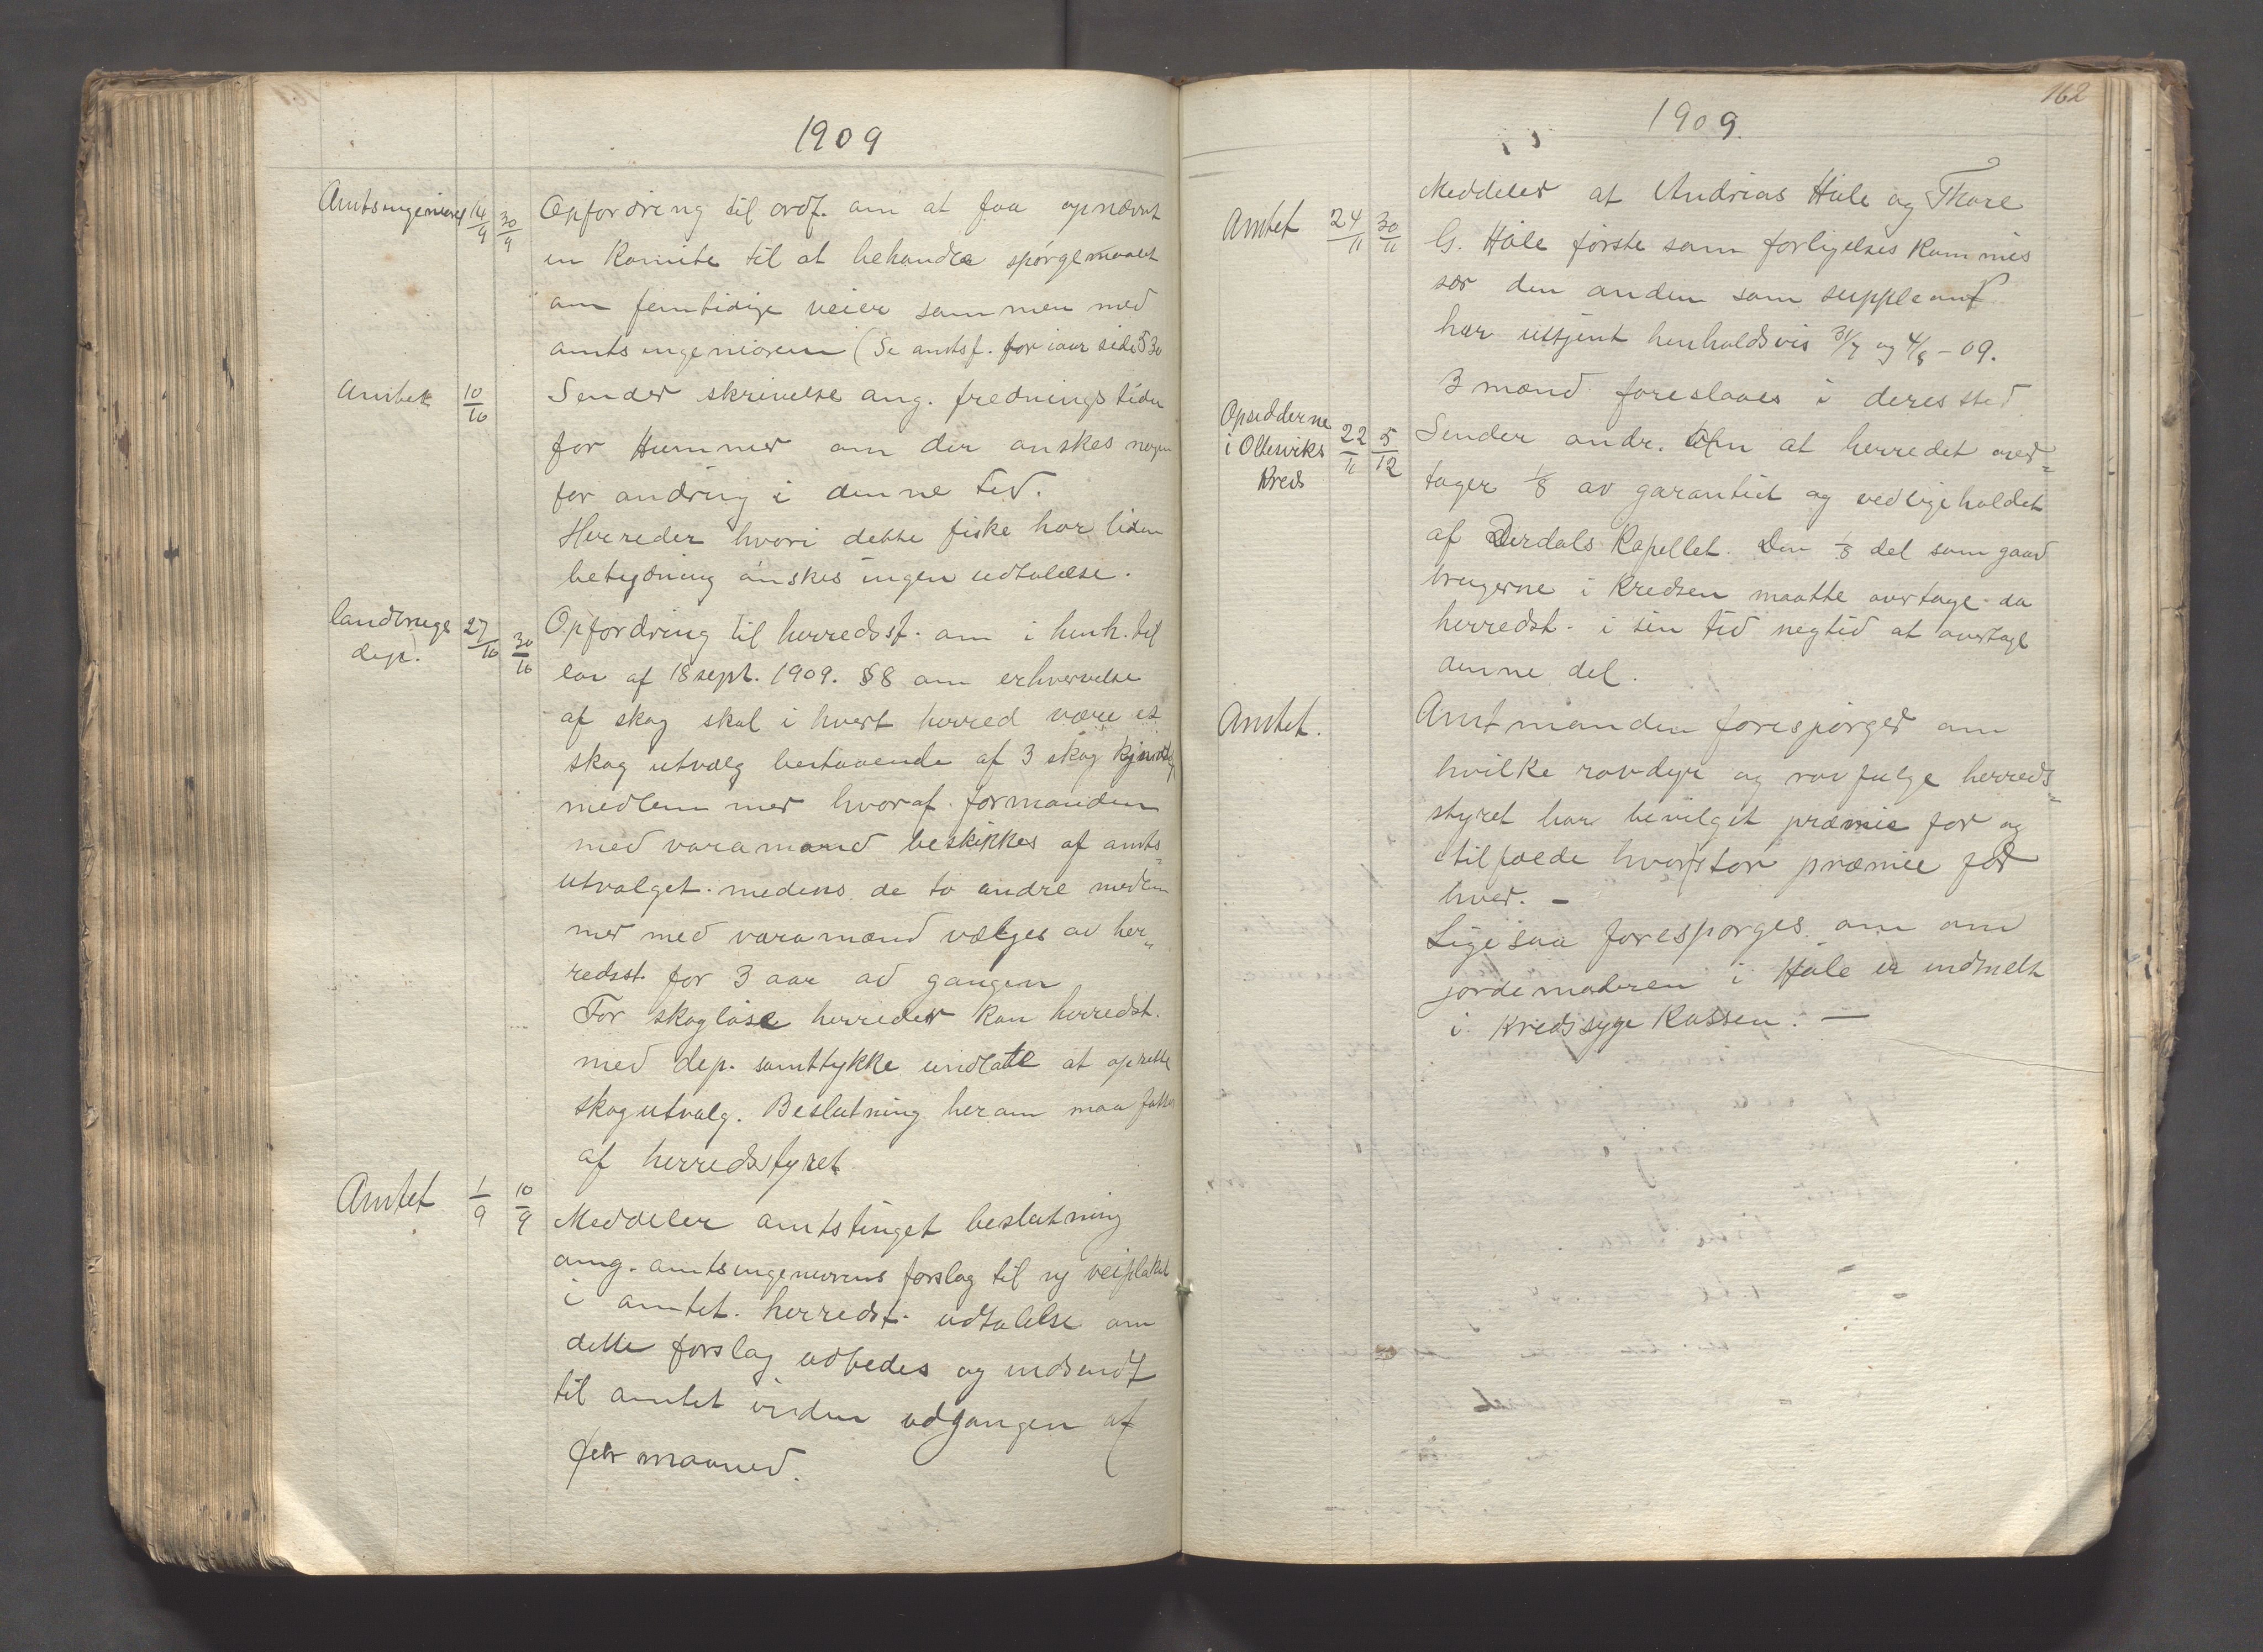 1909
Amtsingeniøren 14/9 30/9 Opfordring til ordf. om at faa opnævnt
en Komite til at behandle spørgsmaalet
om femtidige veier sammen med
amtsingeniøren (Se amtsf. for iaar side 530
Amtet 10/10 Sender skrivelse ang. fredningstiden
for Hummer om der ønskes nogen
forandring i denne tid.
Herreder hvori dette fiske har liden
betydning ønskes ingen udtalelse.
landbrugs 27/10 30/10 Opfordring til herredsst. om i henh. til
dep. lov af 18 sept. 1909. §8 om erhvervelse
af skog skal i hvert herred være et
skog utvalg bestaaende af 3 skog kjyndig
medlemmer hvoraf formanden
med varamand beskikkes af amts-
utvalget. medens de to andre medlem
mer med varamænd vælges av her-
redsst. for 3 aar ad gangen
For skogløse herreder kan herredst.
med dep. samttykke undlate at oprette
skogutvalg. Beslutning herom maa fattes
af herredsstyret.
Amtet 1/9 10/9 Meddeler amtstinget beslutning
ang. amtsingeniørens forslag til ny veiplakat
i amtet. herredst. udtalelse om
dette forslag udbedes og indsendt
til amtet inden udgangen af
febr maaned.
162
1909.
Amtet 24/11 30/11 Meddeler at Andrias Håle og Thore
G. Håle første som forligelses Kommis
sær den anden som suppleant
har uttjent henholdsvis 31/7 og 4/8 - 09.
3 mænd foreslaaes i deres sted
Opsidderne
i Oltesviks 22/11 5/12 Sender andr. om at herredet over-
Kreds tager 1/8 av garantiet og vedligeholdet
af Dirdals Kapellet. Den 1/8 del som gaard
brugerne i Kredsen maatte overtage da
herredst. i sin tid negtid at overtage
denne del.
Amtet. Amtmanden forespørger om
hvilke rovdyr og rovfulge herreds-
styret har bevilget præmie for og
itilfælde hvor stor præmie for
hver. -
Lige saa forespørges om om
jordemoderen i Håle er indmelt
i Kredssyge Kassen. —